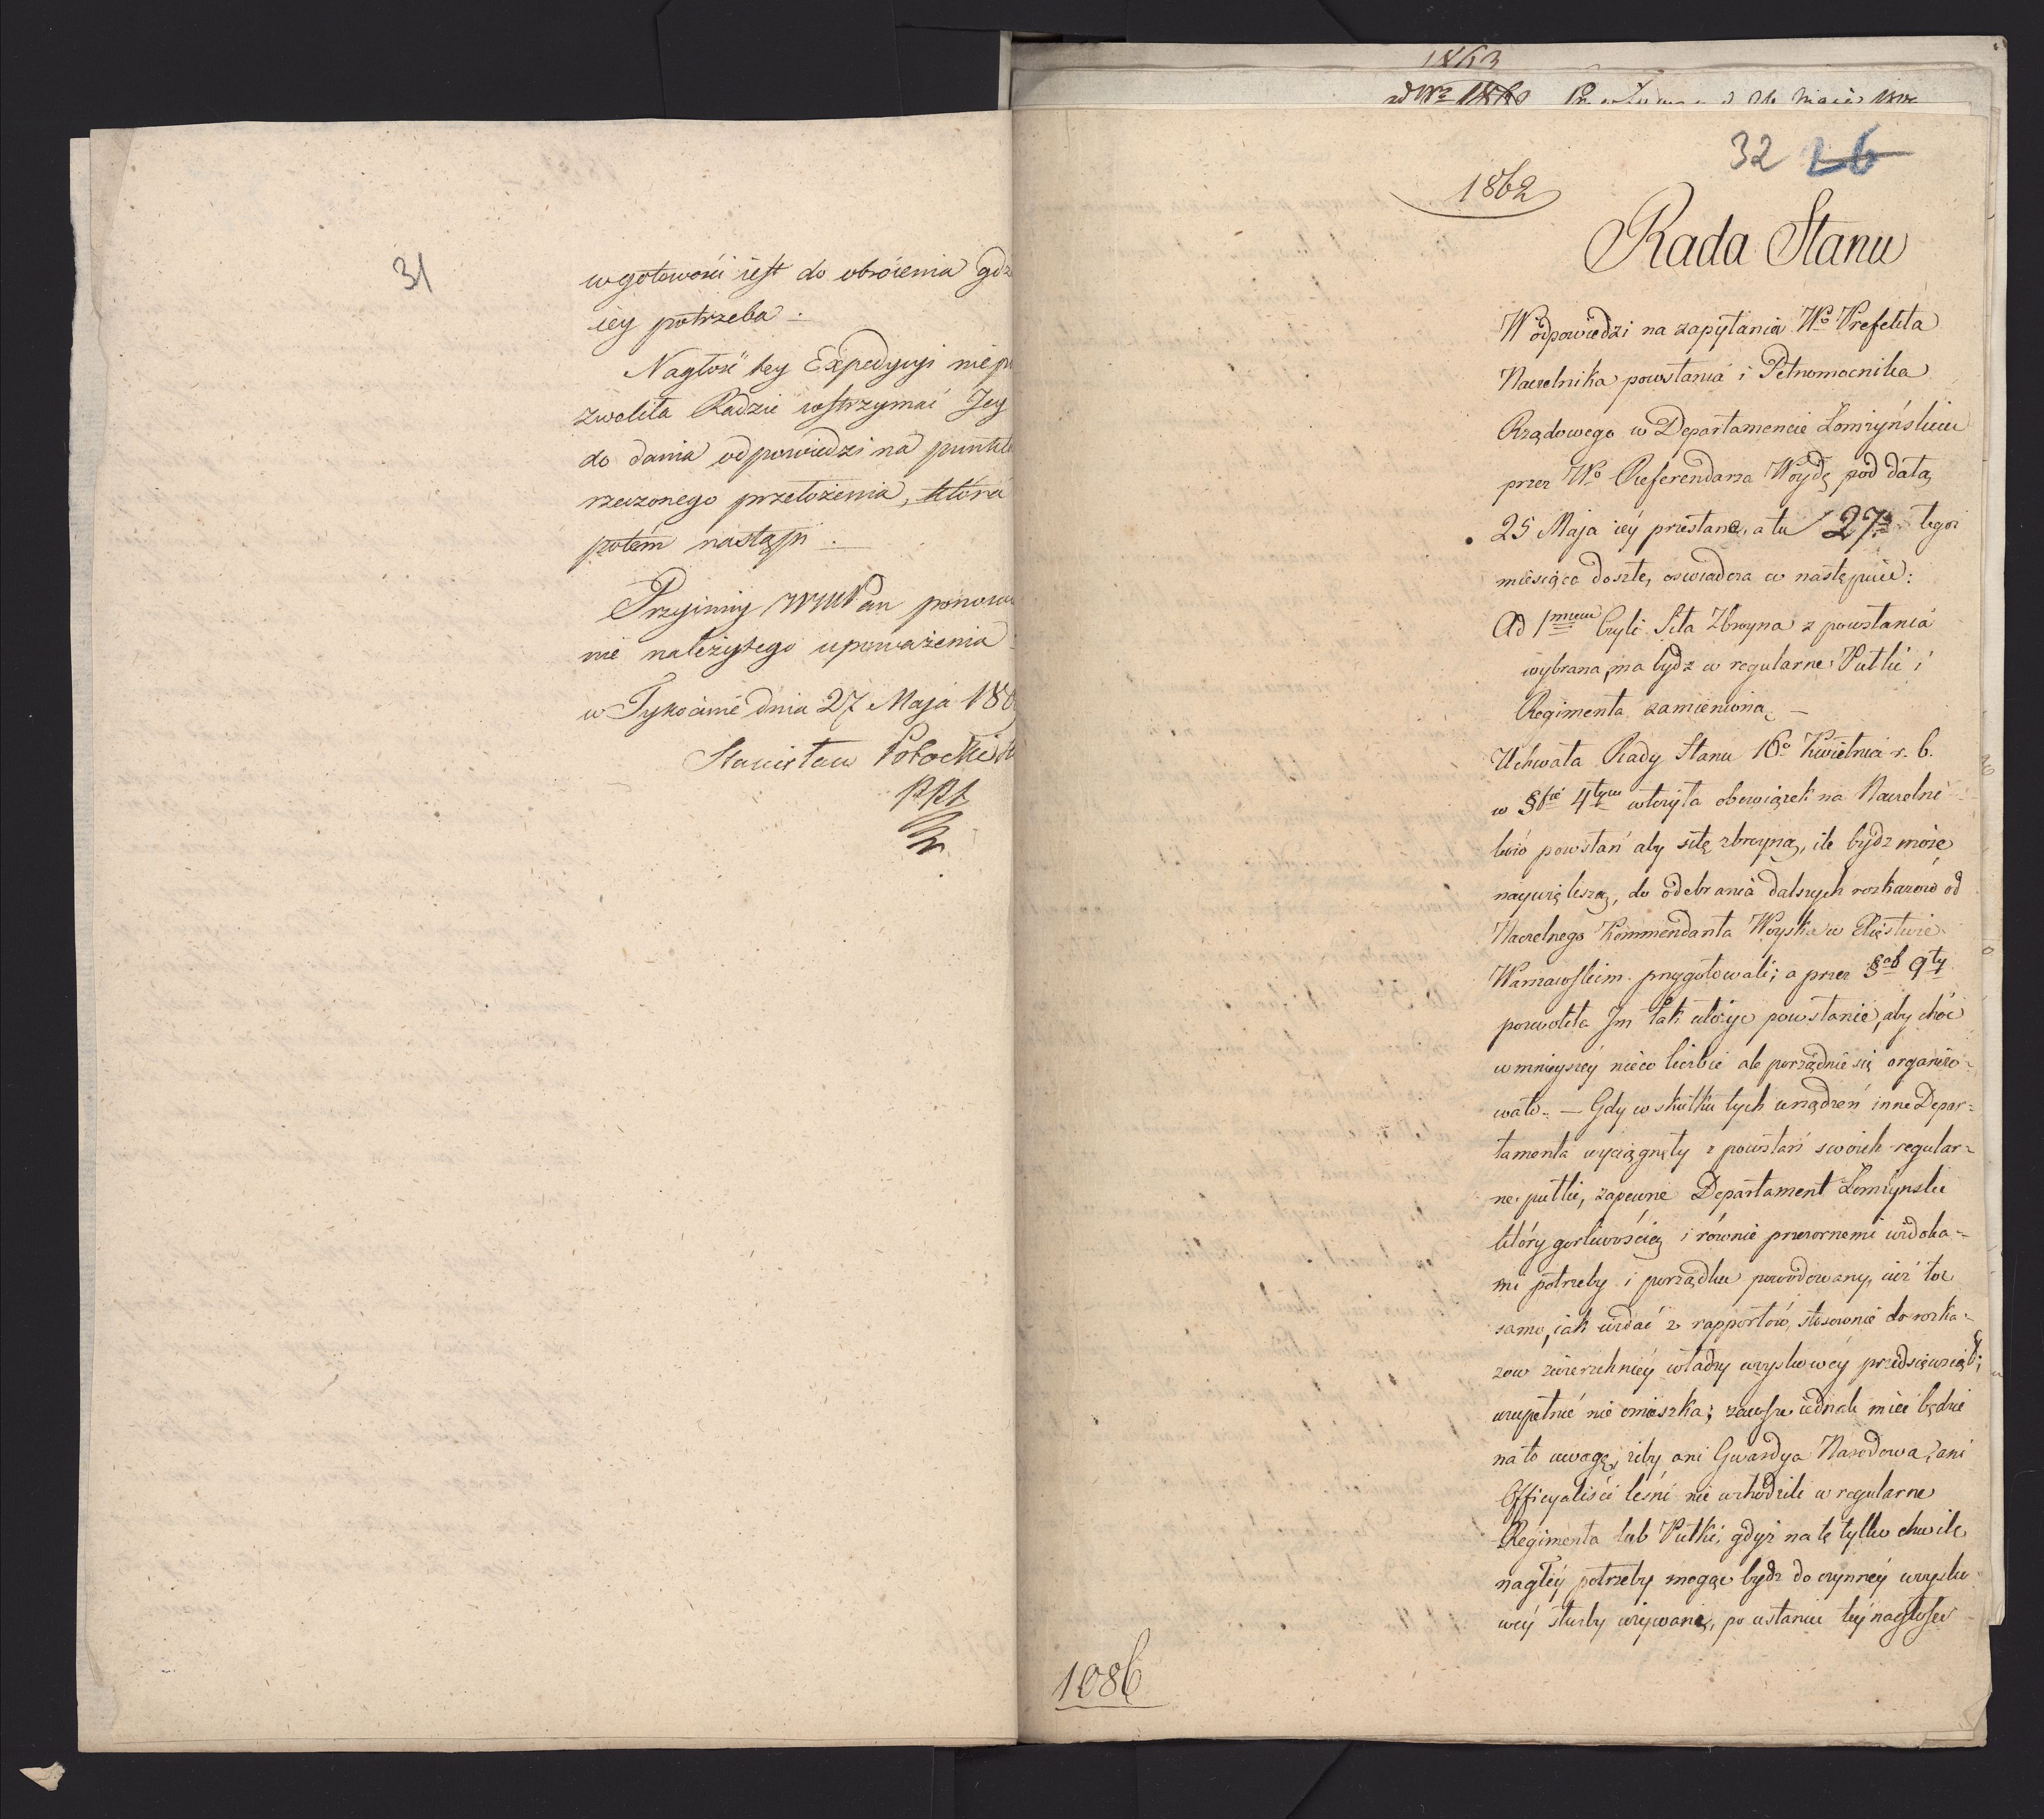 31
w gotowości iest do obrócenia gdz
iey potrzeba.
Nagłość tey Expedycyi nie p
zwoliła Radzie wstrzymać Jey
do dania odpowiedzi na punkt
rzeczonego przełożenia, która
potém nastąpi.
Przyimiy Pan ponow
nie należytego upoważenia
w Tykocinie dnia 27 Maja 180
Stanisław Potocki
1863
32 26
1862
Rada Stanu
W odpowiedzi na zapytania Wo Prefekta
Naczelnika powstania i Pełnomocnika
Rządowego w Departamencie Łomżyńskim
przez Wo Referendarza Woydę pod datą
25 Maja iéy przesłane, a tu 27o tegoż
miesiąca doszłe, oswiadcza co następuie:
Ad 1mum Czyli Siła Zbroyna z powstania
wybrana, ma bydz w regularne Pułki i
Regimenta zamienioną. —
Uchwała Rady Stanu 16o Kwietnia r. b.
w §fie 4tym włożyła obowiązek na Naczelni-
ków powstań aby siłę zbroyną, ile bydz może
naywiększą, do odebrania dalszych rozkazow od
Naczelnego Kommendanta Woyska w Xięstwie
Warszawskim przygotowali; a przez §af 9ty
pozwoliła Jm tak ułożyc powstanie, aby choć
w mnieyszéy nieco liczbie ale porządnie się organizo-
wało. — Gdy w skutku tych urządzeń inne Depar=
tamenta wyciągnęły z powstań swoich regular=
ne pułki, zapewne Departament Łomżynski
który gorliwością i równie przezornemi widoka=
mi potrzeby i porządku powodowany, też to
samo, iak widać z rapportów, stosownie do rozka=
zow zwierzchniéy władzy woyskowéy przedsięwziął;
uzupełnić nie omieszka; zawsze iednak mieć będzie
na to uwagę, żeby ani Gwardya Narodowa, ani
Officyaliści leśni nie wchodzili w regularne
Regimenta lub Pułki, gdyż na tę tylko chwilę
nagłéy potrzeby mogąc bydz do czynnéy woysko
wéy służby używani, po ustaniu téy nagłości
1086